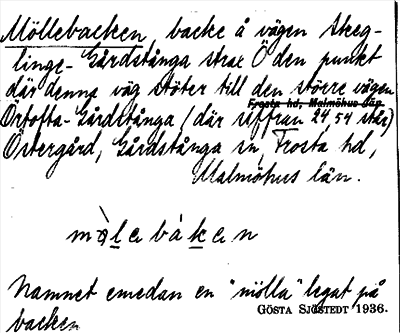 Möllebacken, backe å vägen Skeg-
linge-Gårdstånga strax Ö den punkt
där denna väg stöter till den större vägen
Frosta hd, Malmöhus län.
Örtofta-Gårdstånga (där siffran 24,54 står)
Östergård, Gårdstånga sn, Frosta hd,
Malmöhus län.
mòlebáken
Namnet emedan en "mölla" legat på
GÖSTA SJÖSTEDT 1936.
backen